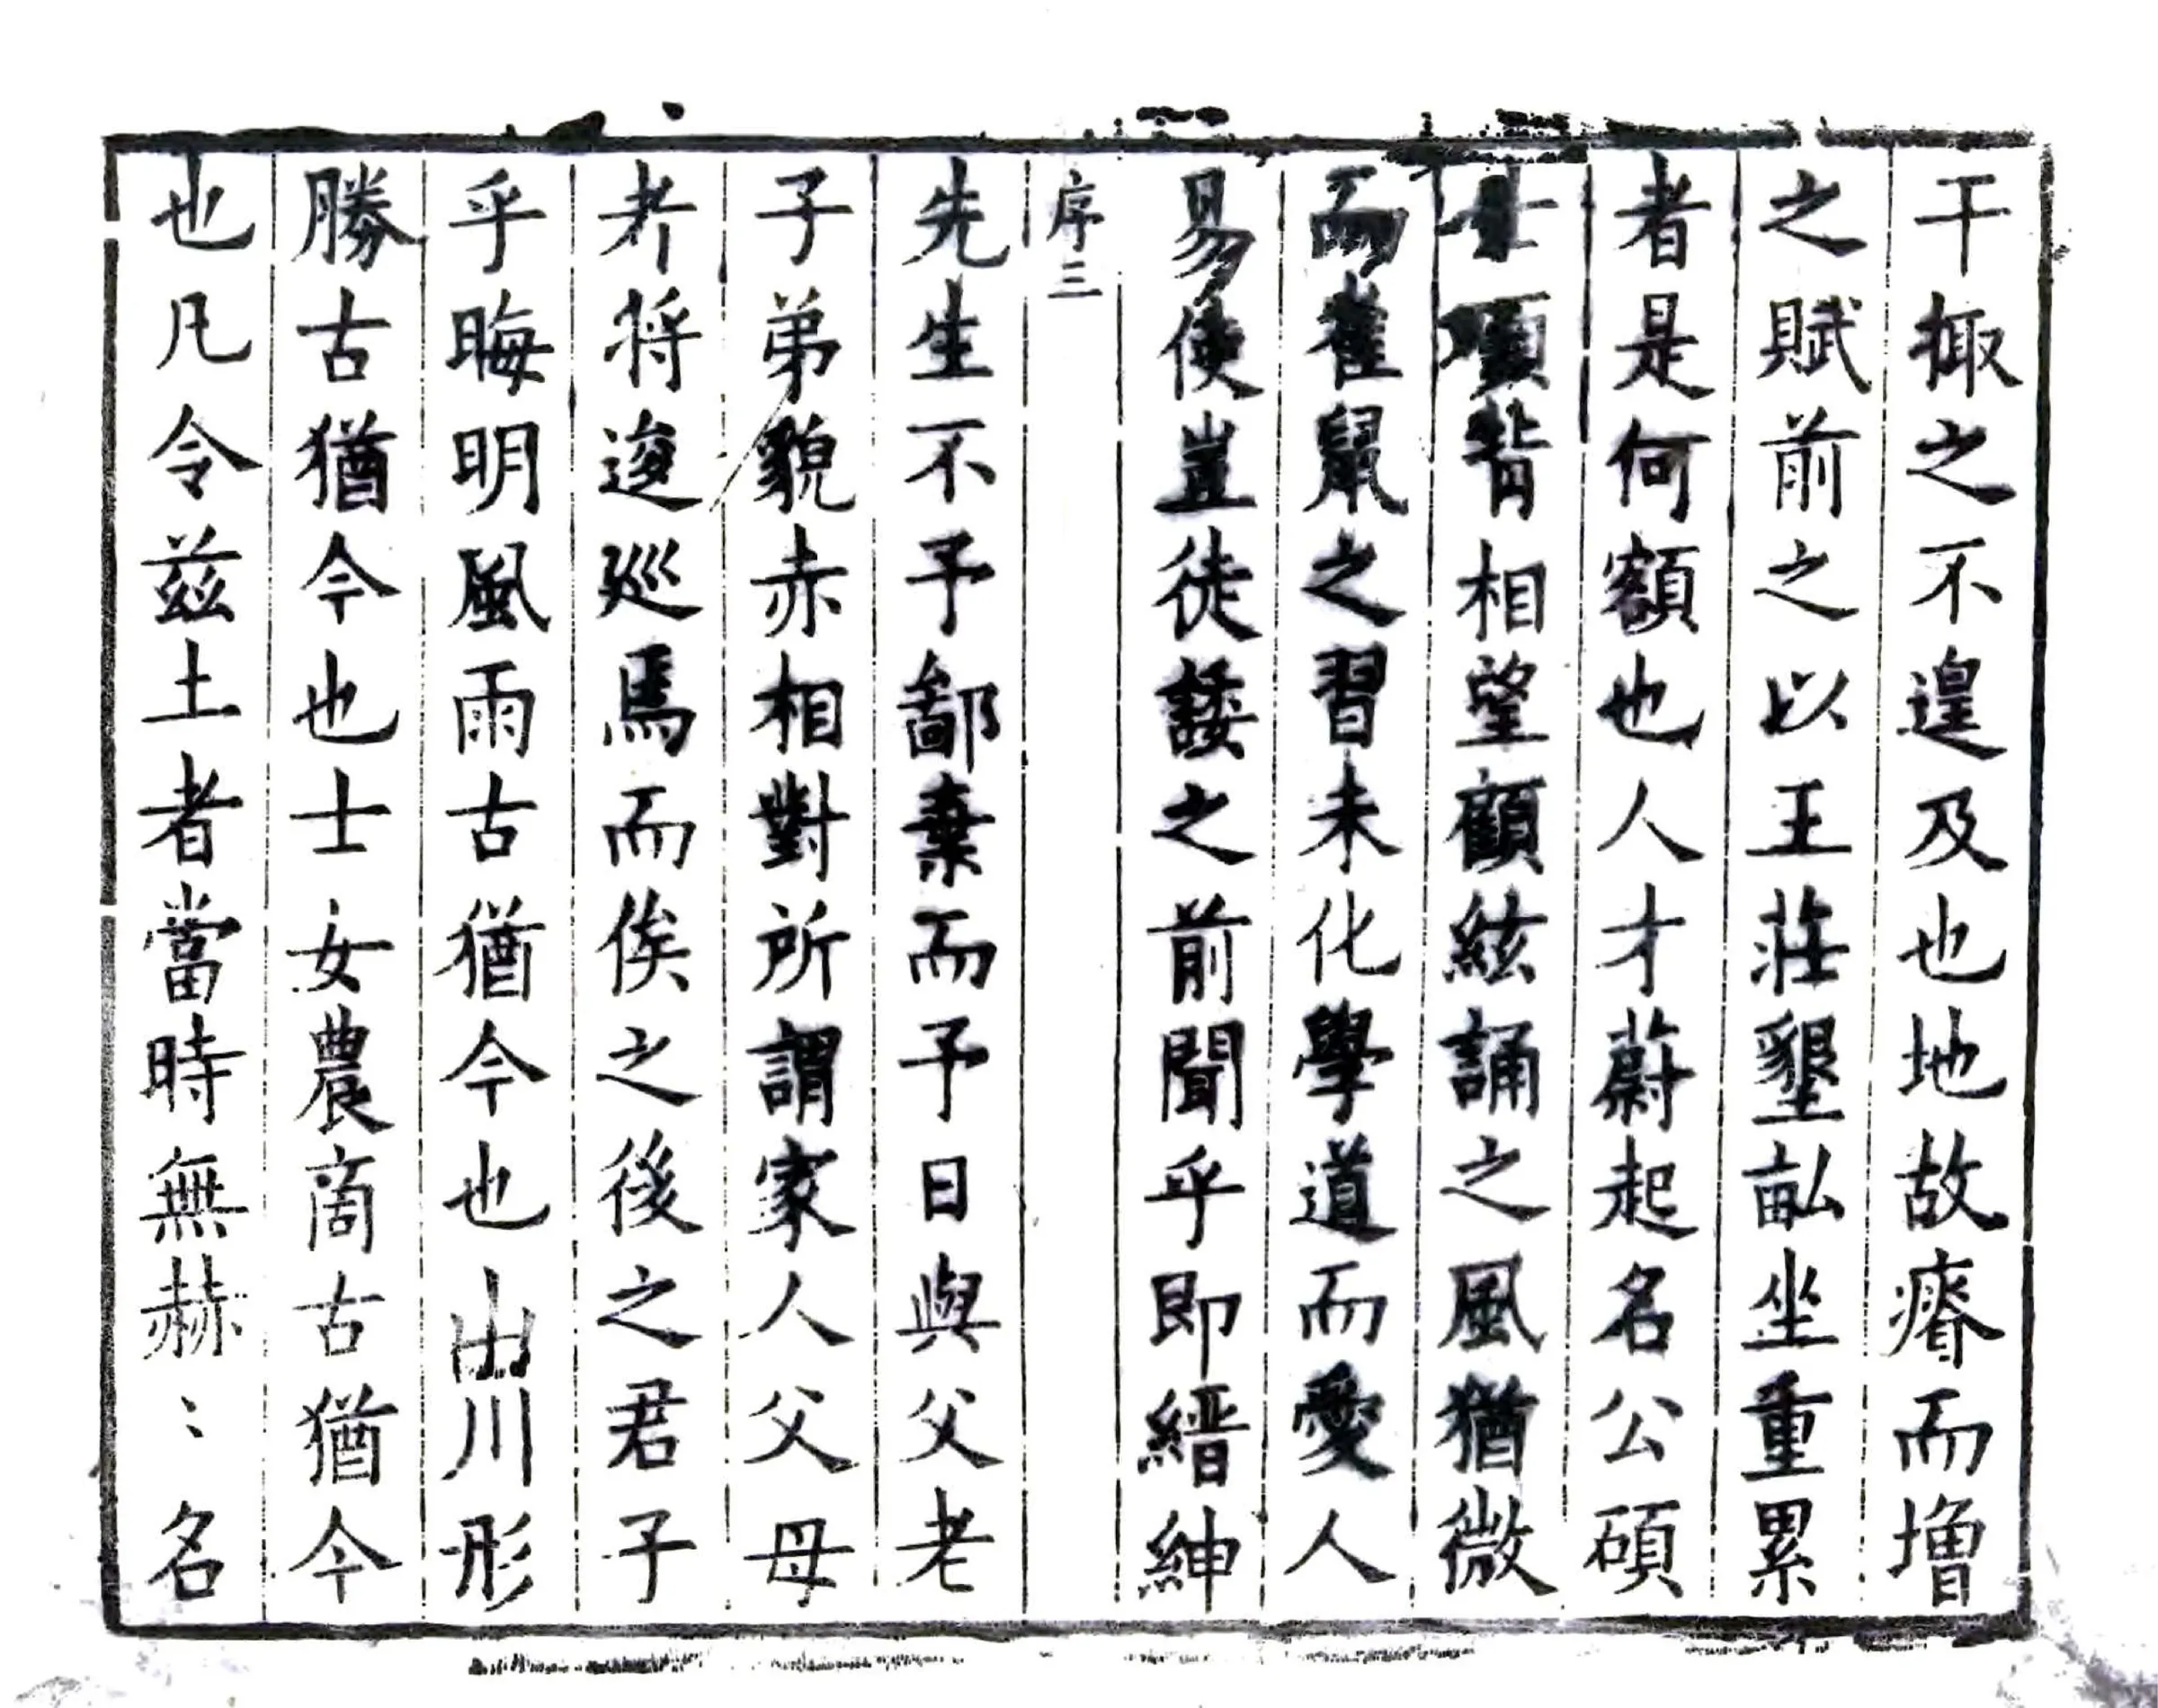 干掫之不遑及也地故瘠而增
之賦前之以王莊墾畆坐重累
者是何額也人才蔚起名公碩
士項背相望顧絃誦之風猶微
而雀鼠之習未化學道而愛人
易使豈徒諉之前聞乎即縉紳
序三
先生不予鄙棄而予日與父老
子弟貌赤相對所謂家人父母
者將逡巡焉而俟之後之君子
乎晦明風雨古猶今也山川形
勝古猶今也士女農商古猶今
也凡令茲土者當時無赫〻名